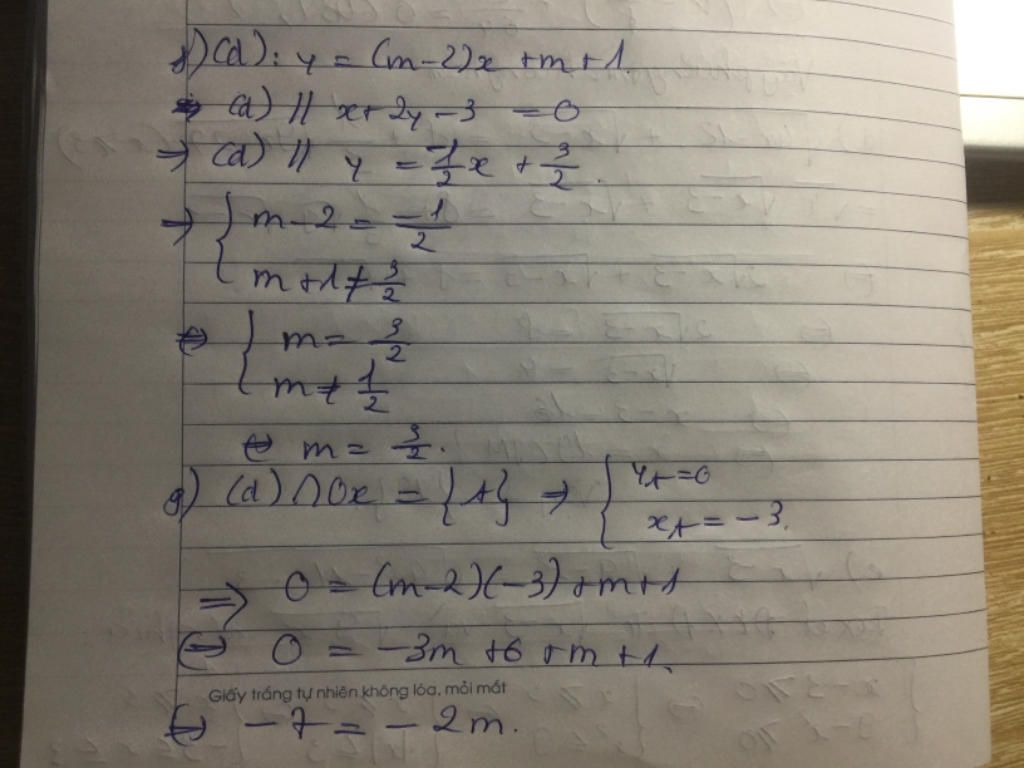 f) (d): y = (m-2)x + m + 1.
=> (d) // x + 2y - 3 = 0
=> (d) // y = -1/2 x + 3/2.
=> { m - 2 = -1/2
m + 1 ≠ 3/2
<=> { m = 3/2
m ≠ 1/2
<=> m = 3/2.
g) (d) ∩ Ox = {A} => { y_A = 0
x_A = -3.
=> 0 = (m-2)(-3) + m + 1
<=> 0 = -3m + 6 + m + 1.
Giấy trắng tự nhiên, không lóa, mỏi mắt
<=> -7 = -2m.